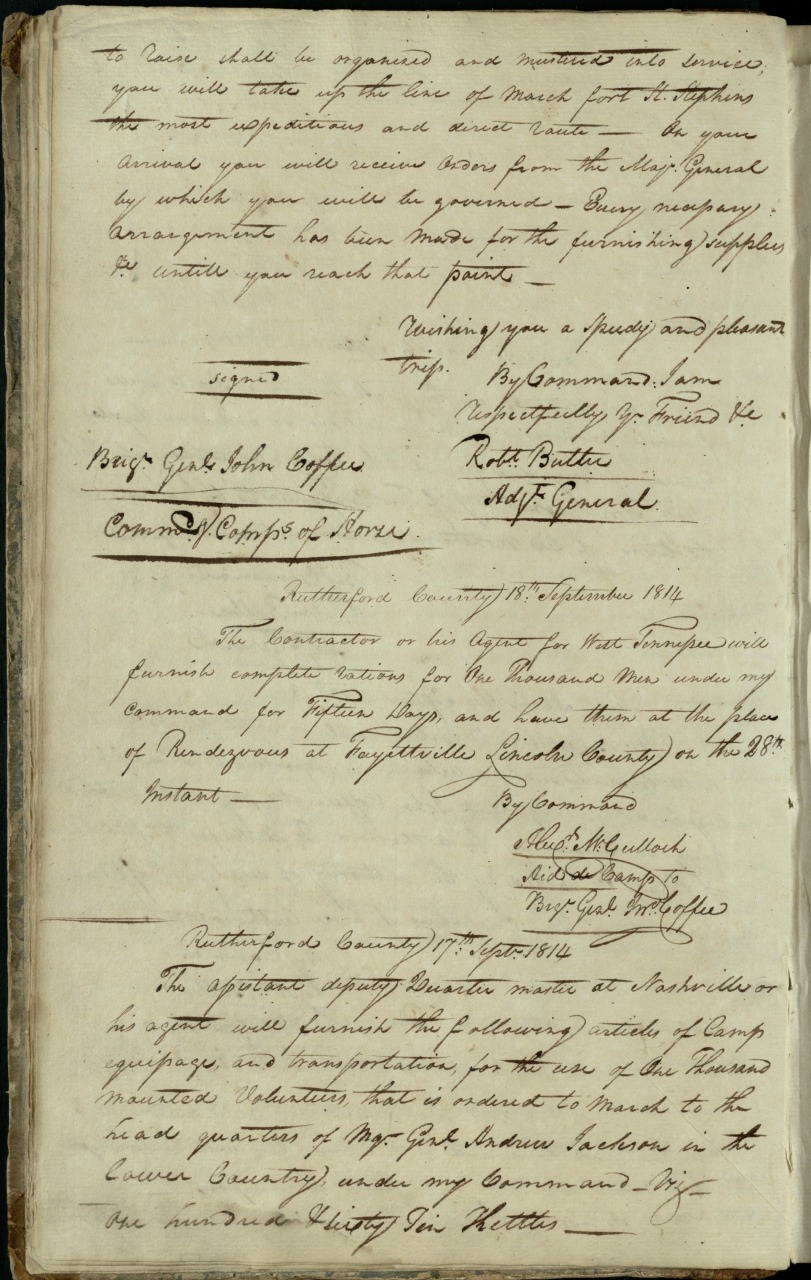 to raise shall be organised and mustered into service,
you will take up the line of March fort St. Stephens
the most expeditious and direct route — On your
arrival you will receive Orders from the Majr. General
by which you will be governed — Every necessary
arrangement has been made for the furnishing supplies
&c untill you reach that point —
Wishing you a speedy and pleasant
trip.
By Command. I am
signed
respectfully Yr. Friend &c
Brigr. Genl. John Coffee
Robt. Butler
Adjt. General
Commdg. Comps. of Horse.
Rutherford County 18th. September 1814
The Contractor or his Agent for West Tennessee will
furnish complete rations for One Thousand Men under my
command for Fifteen Days, and have them at the place
of Rendezvous at Fayettville Lincoln County on the 28th
Instant —
By Command
Alexr. McCulloch
Aid de Camp to
Brgr. Genl. Jno. Coffee
Rutherford County 17th. Septr. 1814
The assistant deputy Quarter master at Nashville or
his agent will furnish the following articles of Camp
equipage, and transportation, for the use of One Thousand
mounted Volunteers, that is ordered to March to the
head quarters of Mgr. Genl. Andrew Jackson in the
lower Country, under my Command — Viz —
One hundred & thirty Tin Kettles —